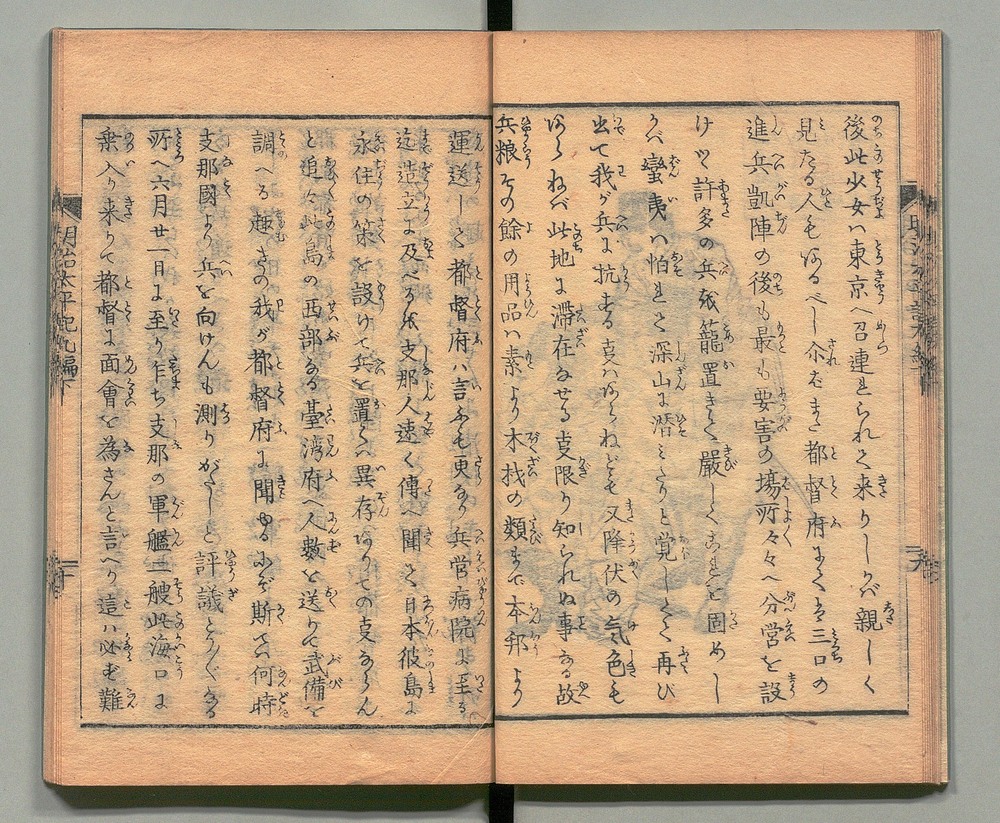 後此少女ハ東京へ召連られて来りしかバ親しく
見たる人もあるべし尒るまに都督府にてハ三口の
進兵凱陣の後も最も要害の場所々々へ分営を設
けて許多の兵を籠置きて厳しくこれを固めし
かバ蠻夷ハ怕れて深山に潜ミたりと覚しくて再び
出て我が兵に抗する事ハあらねども又降伏の気色も
あらねバ此地に滞在なせる事限り知られぬ事なる故
兵粮その餘の用品ハ素より木材の類まで本邦より
運送して都督府ハ言ふも更なり兵営病院に至る
迄造立に及べるを支那人速く傳へ聞て日本彼島に
永住の策を設けて兵を置くハ異存ありての事ならん
と追々此島の西部なる臺湾府へ人數を送りて武備を
調へる趣きの我が都督府に聞ゆるにぞ斯てハ何時
支那國より兵を向けんも測りがたしと評議とりどりなる
所へ六月廿一日に至り乍ち支那の軍艦二艘此海口に
乗入り来りて都督に面會を為さんと言へり這ハ必ず難
明治太平記九編下